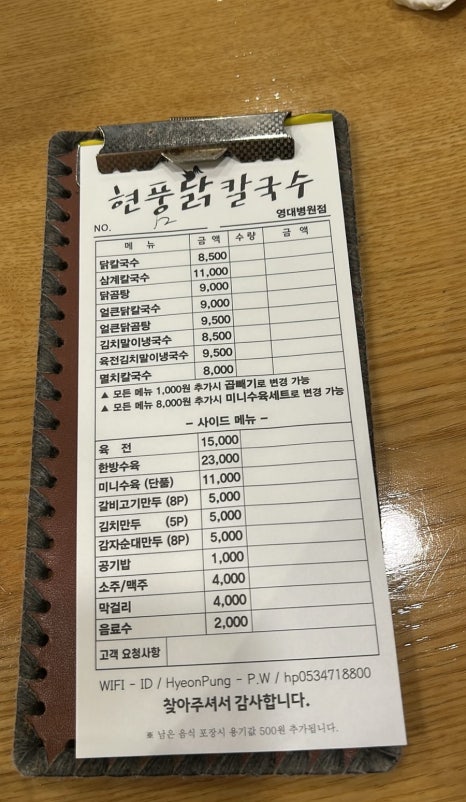 현풍닭칼국수
영대병원점
NO. 12
메 뉴 금 액 수 량 금 액
닭칼국수 8,500
삼계칼국수 11,000
닭곰탕 9,000
얼큰닭칼국수 9,000
얼큰닭곰탕 9,500
김치말이냉국수 8,500
육전김치말이냉국수 9,500
멸치칼국수 8,000
▲ 모든 메뉴 1,000원 추가시 곱빼기로 변경 가능
▲ 모든 메뉴 8,000원 추가시 미니수육세트로 변경 가능
- 사이드 메뉴 -
육 전 15,000
한방수육 23,000
미니수육 (단품) 11,000
갈비고기만두 (8P) 5,000
김치만두 (5P) 5,000
감자순대만두 (8P) 5,000
공기밥 1,000
소주/맥주 4,000
막걸리 4,000
음료수 2,000
고객 요청사항
WIFI - ID / HyeonPung - P.W / hp0534718800
찾아주셔서 감사합니다.
※ 남은 음식 포장시 용기값 500원 추가됩니다.